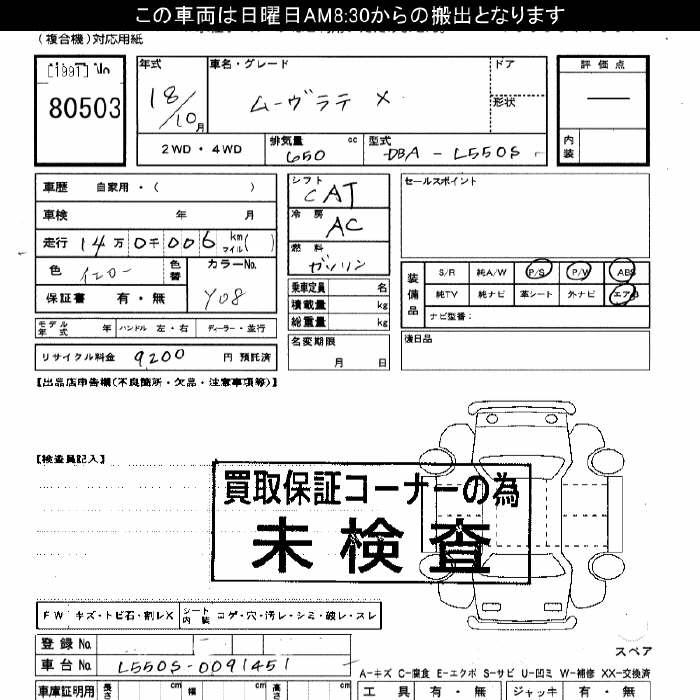 この車両は日曜日AM8:30からの搬出となります
(複合機)対応用紙
[1991] No
80503
年式
18/10月
車名・グレード
ムーヴラテ X
ドア
形状
評価点
内装
2WD・4WD
排気量 cc
650
型式
DBA-L550S
車歴 自家用・( )
車検 年 月
走行 14万0千006 km マイル( )
色 イエロー
色替
カラーNo.
Y08
保証書 有・無
モデル年式 年
ハンドル 左・右
ディーラー・並行
リサイクル料金 9200 円 預託済
シフト
CAT
冷房
AC
燃料
ガソリン
乗車定員 名
積載量 kg
総重量 kg
名変期限
月 日
セールスポイント
装備品
S/R 純A/W P/S P/W ABS
純TV 純ナビ 革シート 外ナビ エアB
ナビ型番:
後日品
【出品店申告欄(不良箇所・欠品・注意事項等)】
【検査員記入】
買取保証コーナーの為
未検査
FW キズ・トビ石・割レX
シート内装 コゲ・穴・汚レ・シミ・破レ・スレ
登録No.
車台No. L550S-0091451
スペア
A-キズ C-腐食 E-エクボ S-サビ U-凹ミ W-補修 XX-交換済
車庫証明用 長さ cm 幅 cm 高さ cm
工具 有・無 ジャッキ 有・無